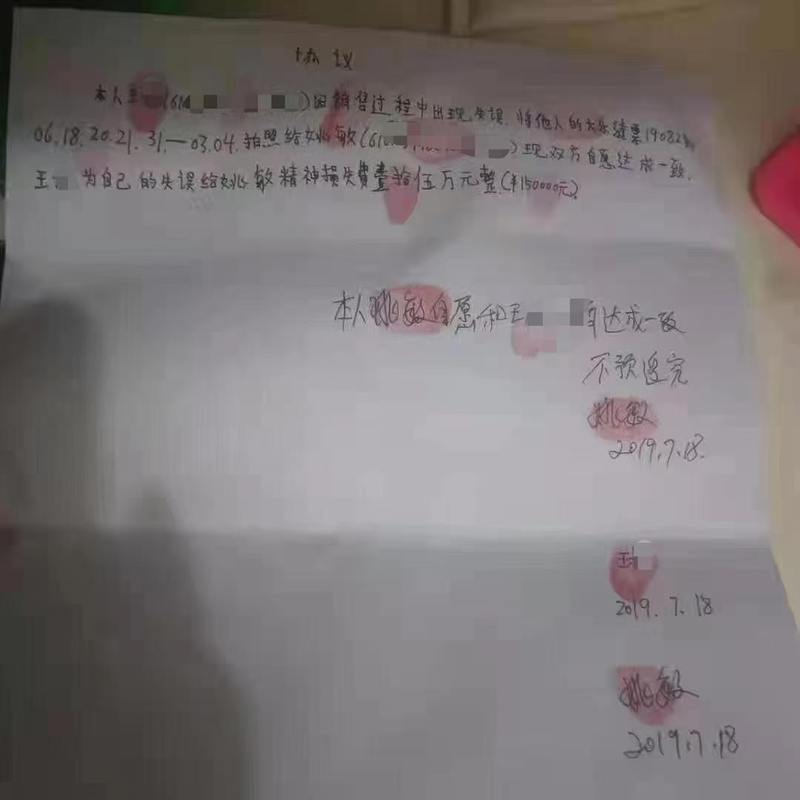 协议
本人王(610)因销售过程中出现失误.将他人的大乐透票19082期
06.18.20.21.31.—03.04.拍照给姚敏(610)现双方自愿达成一致.
王 为自己的失误给姚敏精神损失费壹拾伍万元整(¥150000元)。
本人姚敏自愿和王 达成一致
不预追究
姚敏
2019.7.18.
王
2019.7.18
姚敏
2019.7.18